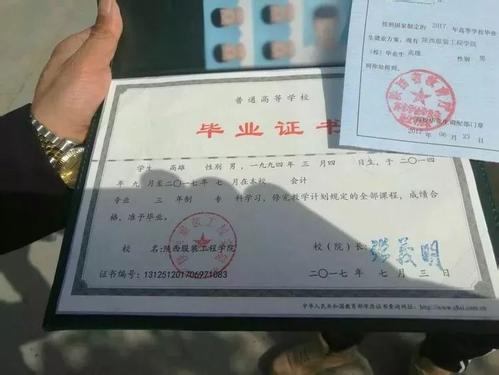 按照国家制定的 2017 年高等学校毕业
生就业方案，现有 陕西服装工程学院
(校) 毕业生 高雄 性别 男
陕西省教育厅
2017 年 06 月 23 日
普通高等学校
毕业证书
学生 高雄 性别 男，一九九四年 三 月 四 日生，于二〇一四
年 九 月至二〇一七年 七 月在本校 会计
专业 三 年制 专 科学习，修完教学计划规定的全部课程，成绩合
格，准予毕业。
校 名：陕西服装工程学院
校（院）长：
证书编号：131251201706971083
二〇一七年 七 月 三 日
中华人民共和国教育部学历证书查询网址：http://www.chsi.com.cn